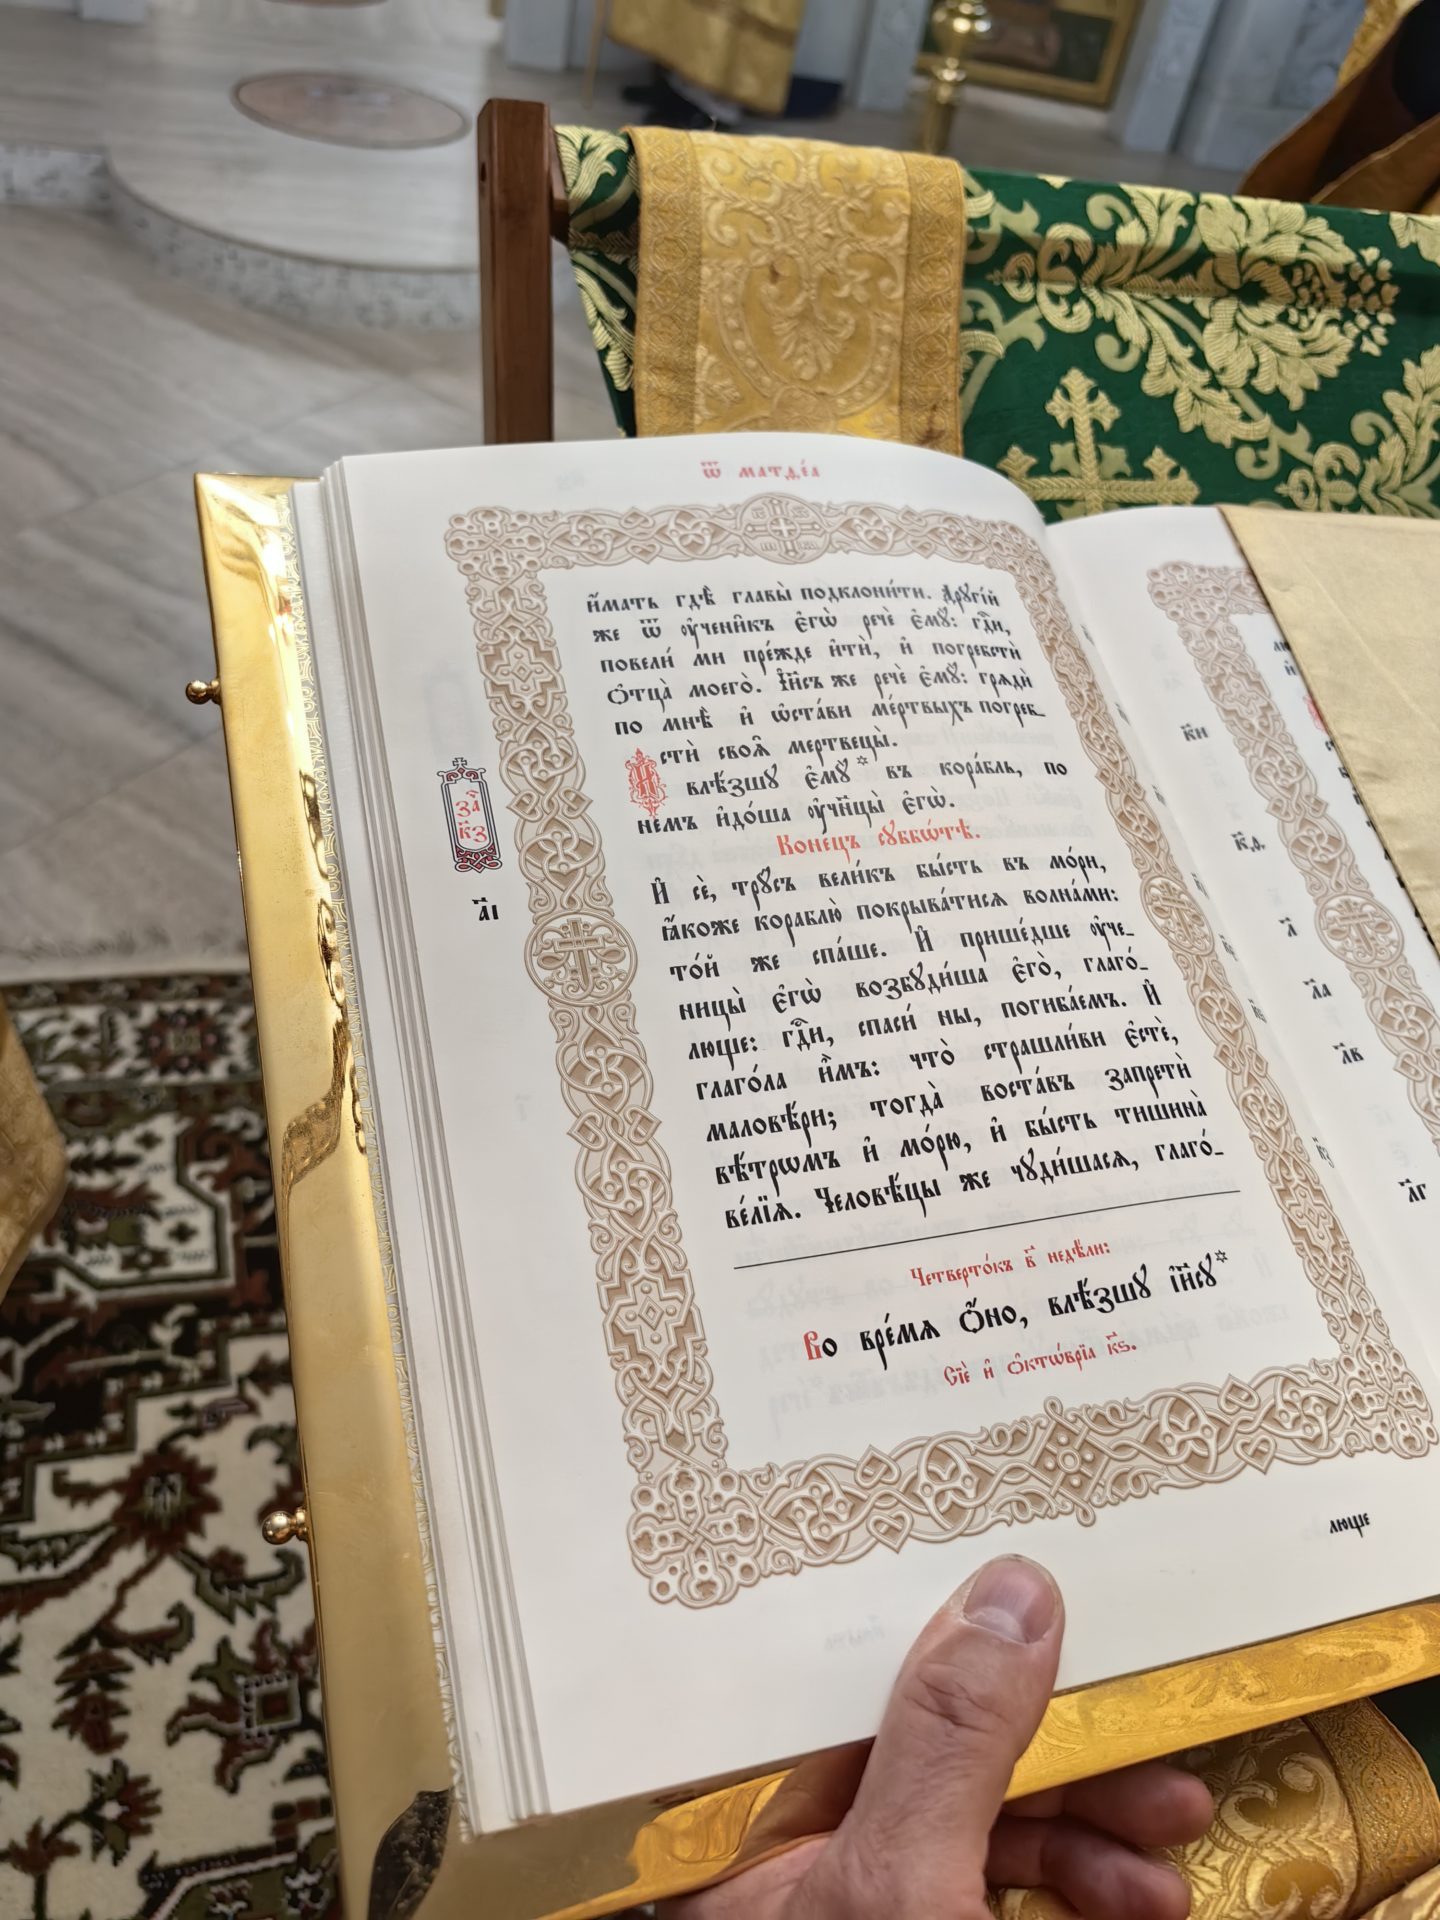 Ѿ МАТѲЕ́А
и҆́мать гдѣ̀ главы̀ подклони́ти. Дрꙋгі́й
же ѿ ᲂу҆чени̑къ є҆гѡ̀ речѐ є҆мꙋ̀: гдⷭ҇и,
повели́ ми пре́жде и҆тѝ, и҆ погребстѝ
ѻ҆тца̀ моего̀. І҆и҃съ же речѐ є҆мꙋ̀: грядѝ
по мнѣ̀ и҆ ѡ҆ста́ви ме́ртвыхъ погреб_
стѝ своѧ̑ мертвецы̀.
И҆ влѣ́зшꙋ є҆мꙋ̀ * въ кора́бль, по
за҆ к҃з
не́мъ и҆до́ша ᲂу҆чн҃цы̀ є҆гѡ̀.
Коне́цъ сꙋббѡ́тѣ.
И҆ сѐ, трꙋ́съ вели́къ бы́сть въ мо́ри,
к҃д
ꙗ҆́коже кораблю̀ покрыва́тисѧ волна́ми:
то́й же спа́ше. И҆ прише́дше ᲂу҆че_
ницы̀ є҆гѡ̀ возбꙋди́ша є҆го̀, глаго́_
люще: гдⷭ҇и, спаси́ ны, погиба́емъ. И҆
глаго́ла и҆̀мъ: что̀ страшли́ви є҆стѐ,
маловѣ́ри; тогда̀ воста́въ запретѝ
вѣ́трѡмъ и҆ мо́рю, и҆ бы́сть тишина̀
ве́лїѧ. Человѣ́цы же чꙋди́шасѧ, глаго́_
Четверто́къ в҃ недѣ́ли:
Во вре́мѧ ѻ҆́но, влѣ́зшꙋ і҆и҃сꙋ *
Сїѐ и҆ ѻ҆ктѡ́врїа к҃ѕ.
люще
к҃и
к҃ѳ
л҃
л҃а
л҃в
л҃г